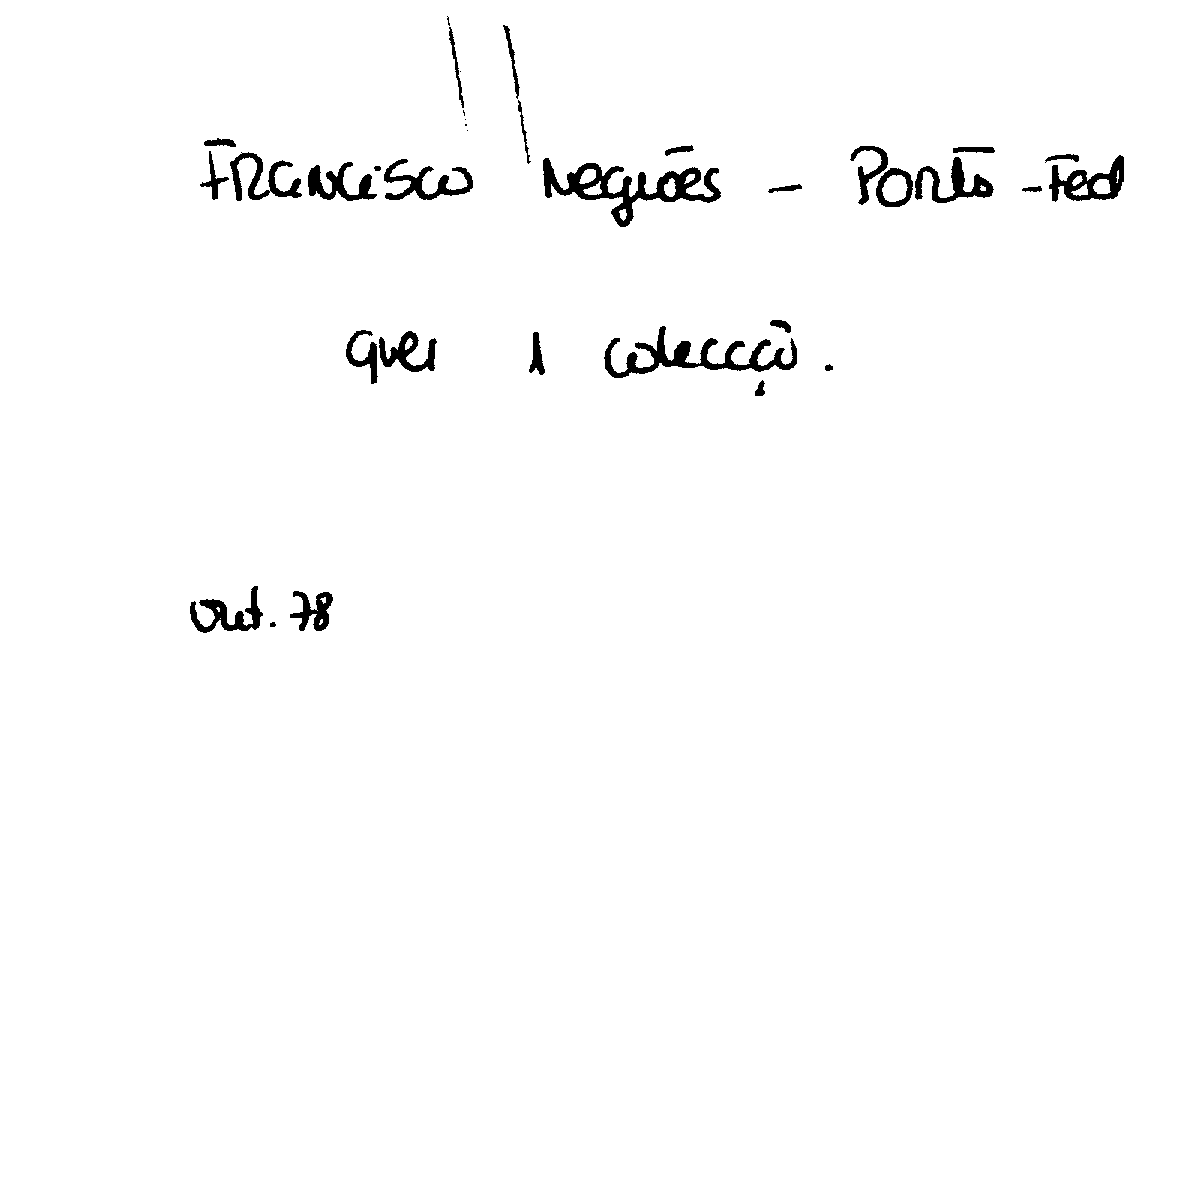 Francisco Negrões - Porto - Fed
quer 1 colecção.
Out. 78